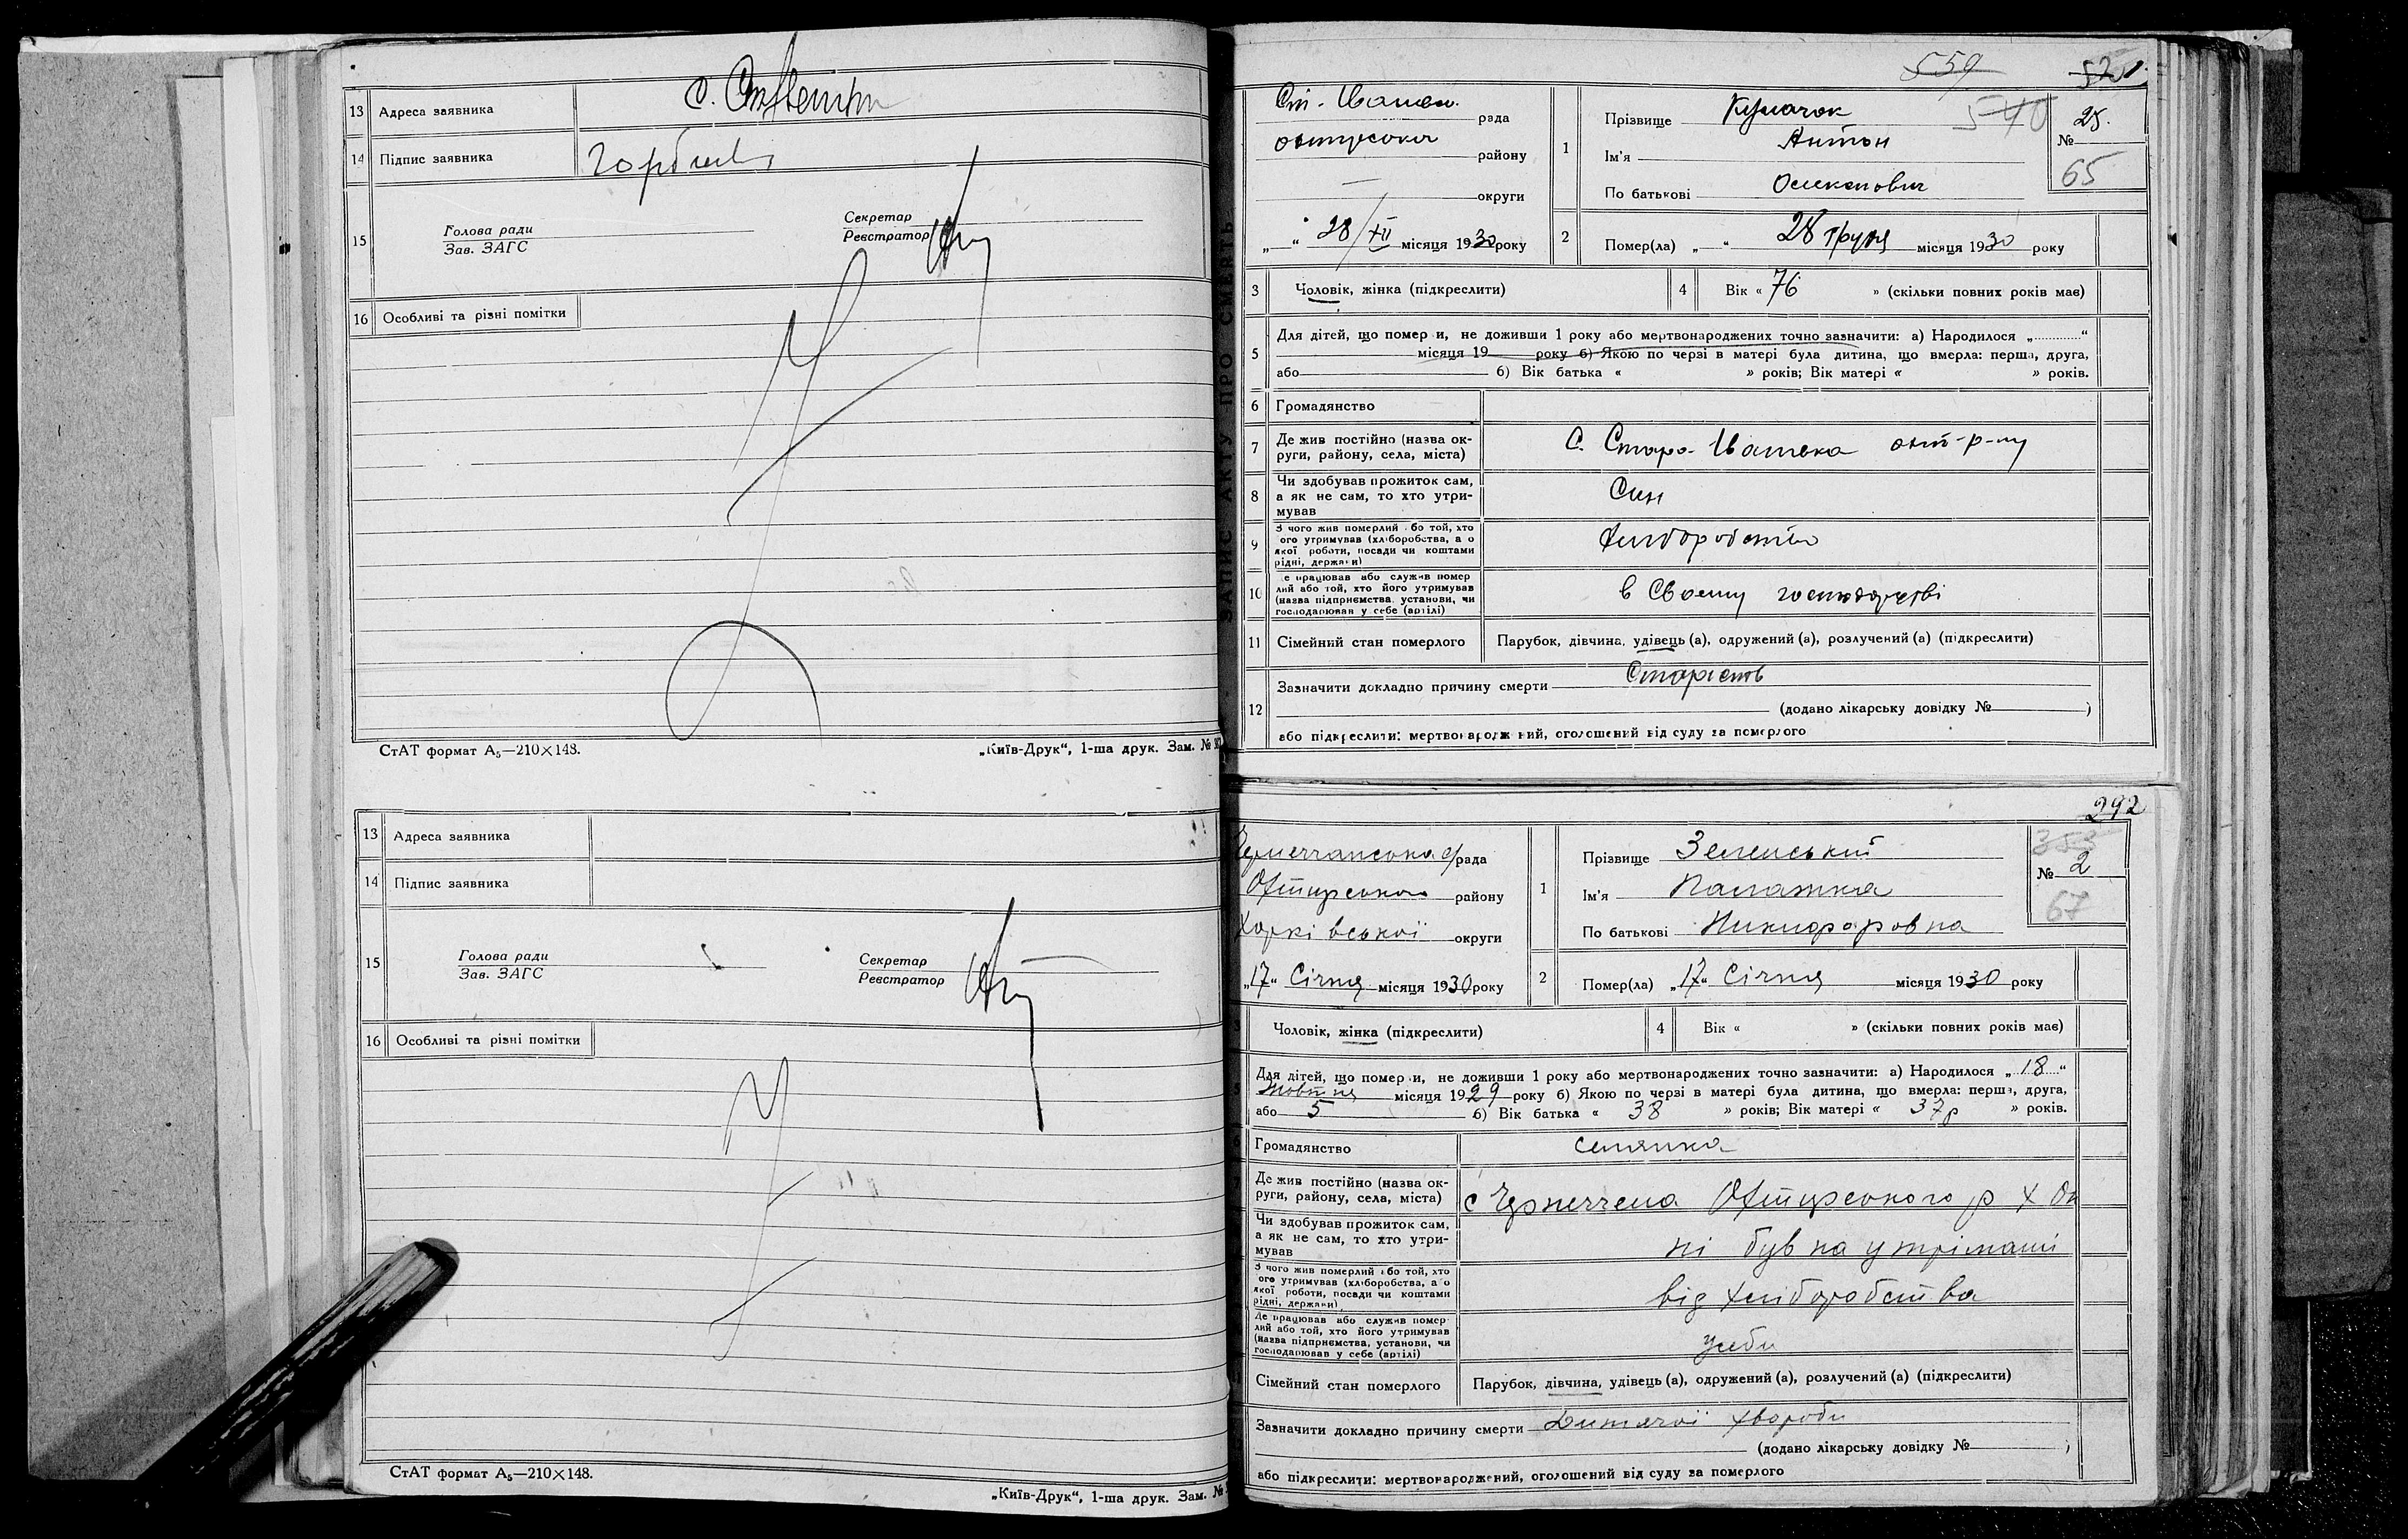 13 Адреса заявника
14 Підпис заявника
15 Голова ради
Зав. ЗАГС
Секретар
Реєстратор
16 Особливі та різні помітки
СтАТ формат А₅—210×148.
„Київ-Друк“, 1-ша друк. Зам. №
13 Адреса заявника
14 Підпис заявника
15 Голова ради
Зав. ЗАГС
Секретар
Реєстратор
16 Особливі та різні помітки
СтАТ формат А₅—210×148.
„Київ-Друк“, 1-ша друк. Зам. №
ЗАПИС АКТУ ПРО СМЕРТЬ
559
рада
району
округи
„ “ 28/XII місяця 1930 року
1 Прізвище
540
Ім'я Антон
По батькові
25.
№
65
2 Помер(ла) „ “ 28 грудня місяця 1930 року
3 Чоловік, жінка (підкреслити)
4 Вік « 76 » (скільки повних років має)
5 Для дітей, що померли, не доживши 1 року або мертвонароджених точно зазначити: а) Народилося „ “
місяця 19 року б) Якою по черзі в матері була дитина, що вмерла: перша, друга,
або б) Вік батька « » років; Вік матері « » років.
6 Громадянство
7 Де жив постійно (назва ок-
руги, району, села, міста)
С. Старо-Іванівка охт-р-ну
8 Чи здобував прожиток сам,
а як не сам, то хто утри-
мував
Син
9 З чого жив померлий або той, хто
його утримував (хліборобства, а о
якої роботи, посади чи коштами
рідні, держави)
хліборобство
10 Де працював або служив помер
лий або той, хто його утримував
(назва підприємства, установи, чи
господарював у себе (артілі)
в Своему господарстві
11 Сімейний стан померлого
Парубок, дівчина, удівець (а), одружений (а), розлучений (а) (підкреслити)
12 Зазначити докладно причину смерти Старість
(додано лікарську довідку № )
або підкреслити: мертвонароджений, оголошений від суду за померлого
292
рада
Охтирського району
Харківської округи
„17“ Січня місяця 1930 року
1 Прізвище Зеленський
Ім'я Палажка
По батькові Никифоровна
353
№ 2
67
2 Помер(ла) „17“ Січня місяця 1930 року
Чоловік, жінка (підкреслити)
4 Вік « » (скільки повних років має)
Для дітей, що померли, не доживши 1 року або мертвонароджених точно зазначити: а) Народилося „18“
Жовтня місяця 1929 року б) Якою по черзі в матері була дитина, що вмерла: перша, друга,
або 5 б) Вік батька « 38 » років; Вік матері « 37р » років.
Громадянство селянка
Де жив постійно (назва ок-
руги, району, села, міста)
с Охтирського р Х Ок
Чи здобував прожиток сам,
а як не сам, то хто утри-
мував
ні був на утріманні
З чого жив померлий або той, хто
його утримував (хліборобства, а о
якої роботи, посади чи коштами
рідні, держави)
від хліборобства
Де працював або служив помер
лий або той, хто його утримував
(назва підприємства, установи, чи
господарював у себе (артілі)
усеби
Сімейний стан померлого
Парубок, дівчина, удівець (а), одружений (а), розлучений (а) (підкреслити)
Зазначити докладно причину смерти Дитячої хвороби
(додано лікарську довідку № )
або підкреслити: мертвонароджений, оголошений від суду за померлого